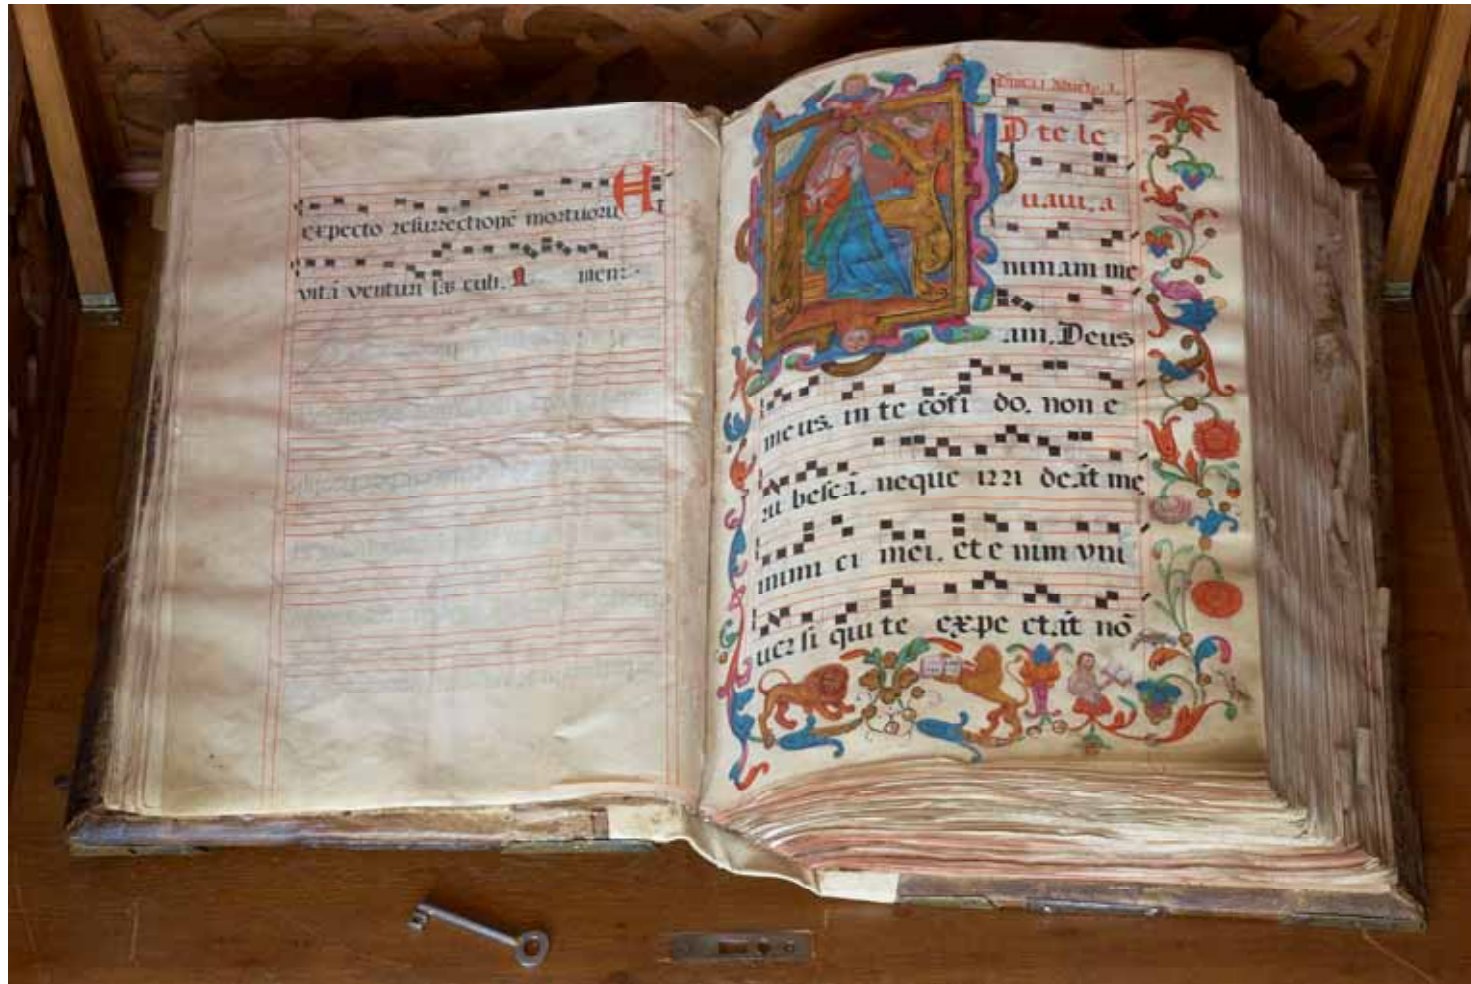 expecto resurrectionē mortuorū Et
vitā venturi sæculi. A men:
D te le
uaui. a
nimam me
am. Deus
meus, in te cōfi do, non e
ru bescā, neque irri deāt me
inimi ci mei, et e nim vni
uersi qui te expe ctāt nō